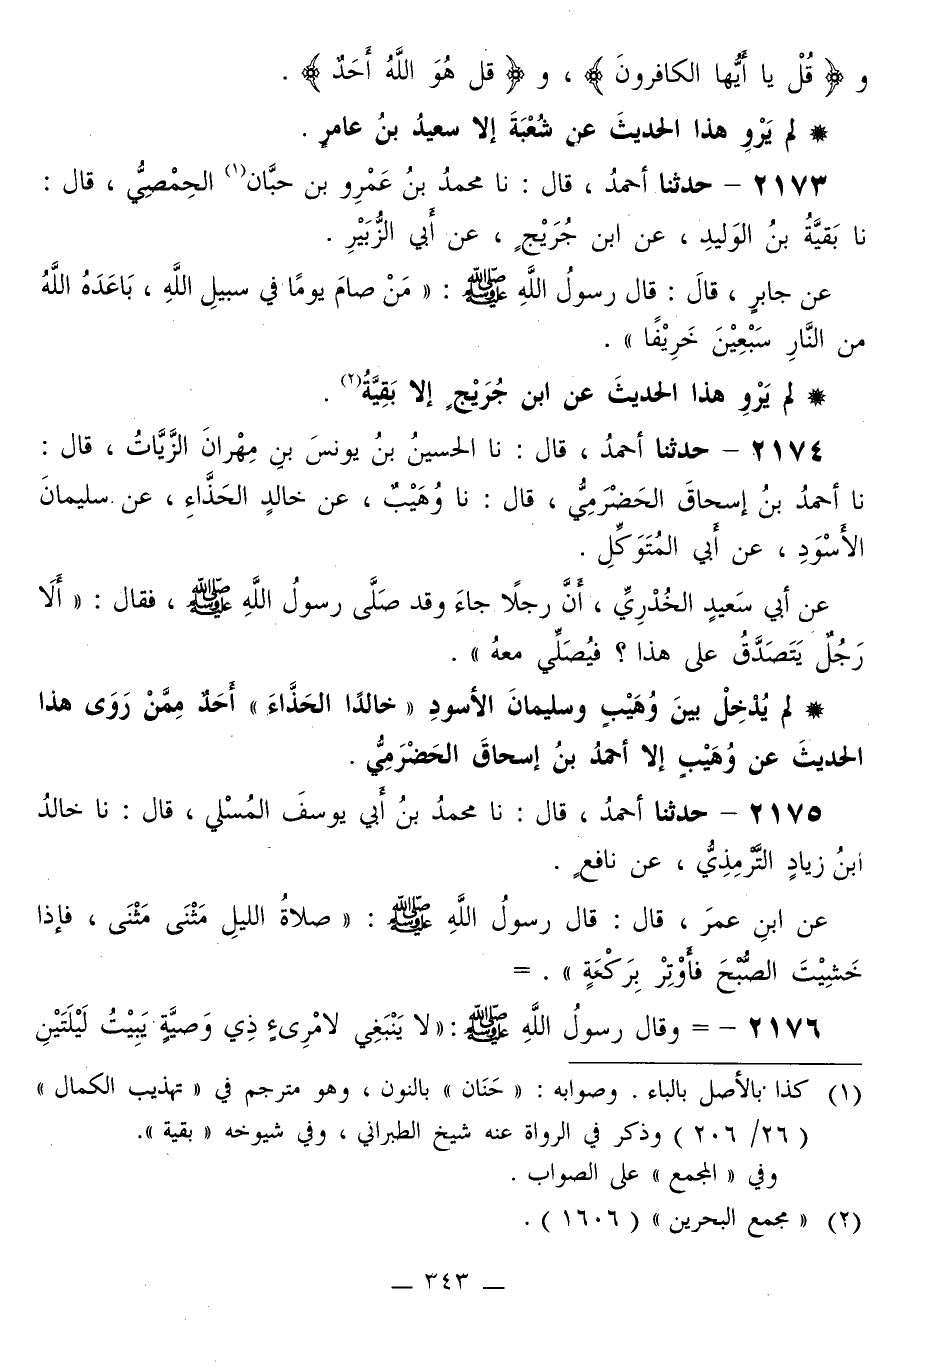 و ﴿ قُلْ يا أَيُّها الكافرونَ ﴾ ، و ﴿ قل هُوَ اللَّهُ أَحَدٌ ﴾ .
* لم يَرْوِ هذا الحديثَ عن شُعْبَةَ إلا سعيدُ بنُ عامرٍ .
٢١٧٣ – حدثنا أحمدُ ، قال : نا محمدُ بنُ عَمْرِو بن حبَّان(١) الحِمْصِيُّ ، قال :
نا بَقيَّةُ بنُ الوَليدِ ، عن ابن جُرَيْجٍ ، عن أَبي الزُّبَيْرِ .
عن جابرٍ ، قالَ : قال رسولُ اللَّهِ ﷺ : « مَنْ صامَ يومًا في سبيلِ اللَّهِ ، بَاعَدَهُ اللَّهُ
من النَّارِ سَبْعِيْنَ خَرِيْفًا » .
* لم يَرْوِ هذا الحديثَ عن ابن جُرَيْجٍ إلا بَقِيَّةُ(٢) .
٢١٧٤ – حدثنا أحمدُ ، قال : نا الحسينُ بنُ يونسَ بنِ مِهْرانَ الزَّيَّاتُ ، قال :
نا أحمدُ بنُ إسحاقَ الحَضْرَمِيُّ ، قال : نا وُهَيْبٌ ، عن خالدٍ الحَذَّاءِ ، عن سليمانَ
الأَسْوَدِ ، عن أَبي المُتَوَكِّلِ .
عن أبي سَعيدٍ الخُدْرِيِّ ، أَنَّ رجلًا جاءَ وقد صَلَّى رسولُ اللَّهِ ﷺ ، فقال : « أَلَا
رَجُلٌ يَتَصَدَّقُ على هذا ؟ فيُصَلِّي معهُ » .
* لم يُدْخِلْ بينَ وُهَيْبٍ وسليمانَ الأسودِ « خالدًا الحَذَّاءَ » أَحَدٌ مِمَّنْ رَوَى هذا
الحديثَ عن وُهَيْبٍ إلا أحمدُ بنُ إسحاقَ الحَضْرَمِيُّ .
٢١٧٥ – حدثنا أحمدُ ، قال : نا محمدُ بنُ أَبي يوسفَ المُسْلي ، قال : نا خالدُ
ابنُ زيادٍ التَّرْمِذِيُّ ، عن نافعٍ .
عن ابنِ عمرَ ، قال : قال رسولُ اللَّهِ ﷺ : « صلاةُ الليلِ مَثْنَى مَثْنَى ، فإذا
خَشِيْتَ الصُّبْحَ فأَوْتِرْ بِرَكْعَةٍ » . =
٢١٧٦ – = وقال رسولُ اللَّهِ ﷺ : « لا يَنْبَغِي لامْرِىءٍ ذِي وَصيَّةٍ يَبِيْتُ لَيْلَتَيْنِ
(١) كذا بالأصل بالباء . وصوابه : « حَنَان » بالنون ، وهو مترجم في « تهذيب الكمال »
( ٢٦/ ٢٠٦ ) وذكر في الرواة عنه شيخ الطبراني ، وفي شيوخه « بقية ».
وفي « المجمع » على الصواب .
(٢) « مجمع البحرين » ( ١٦٠٦ ) .
— ٣٤٣ —